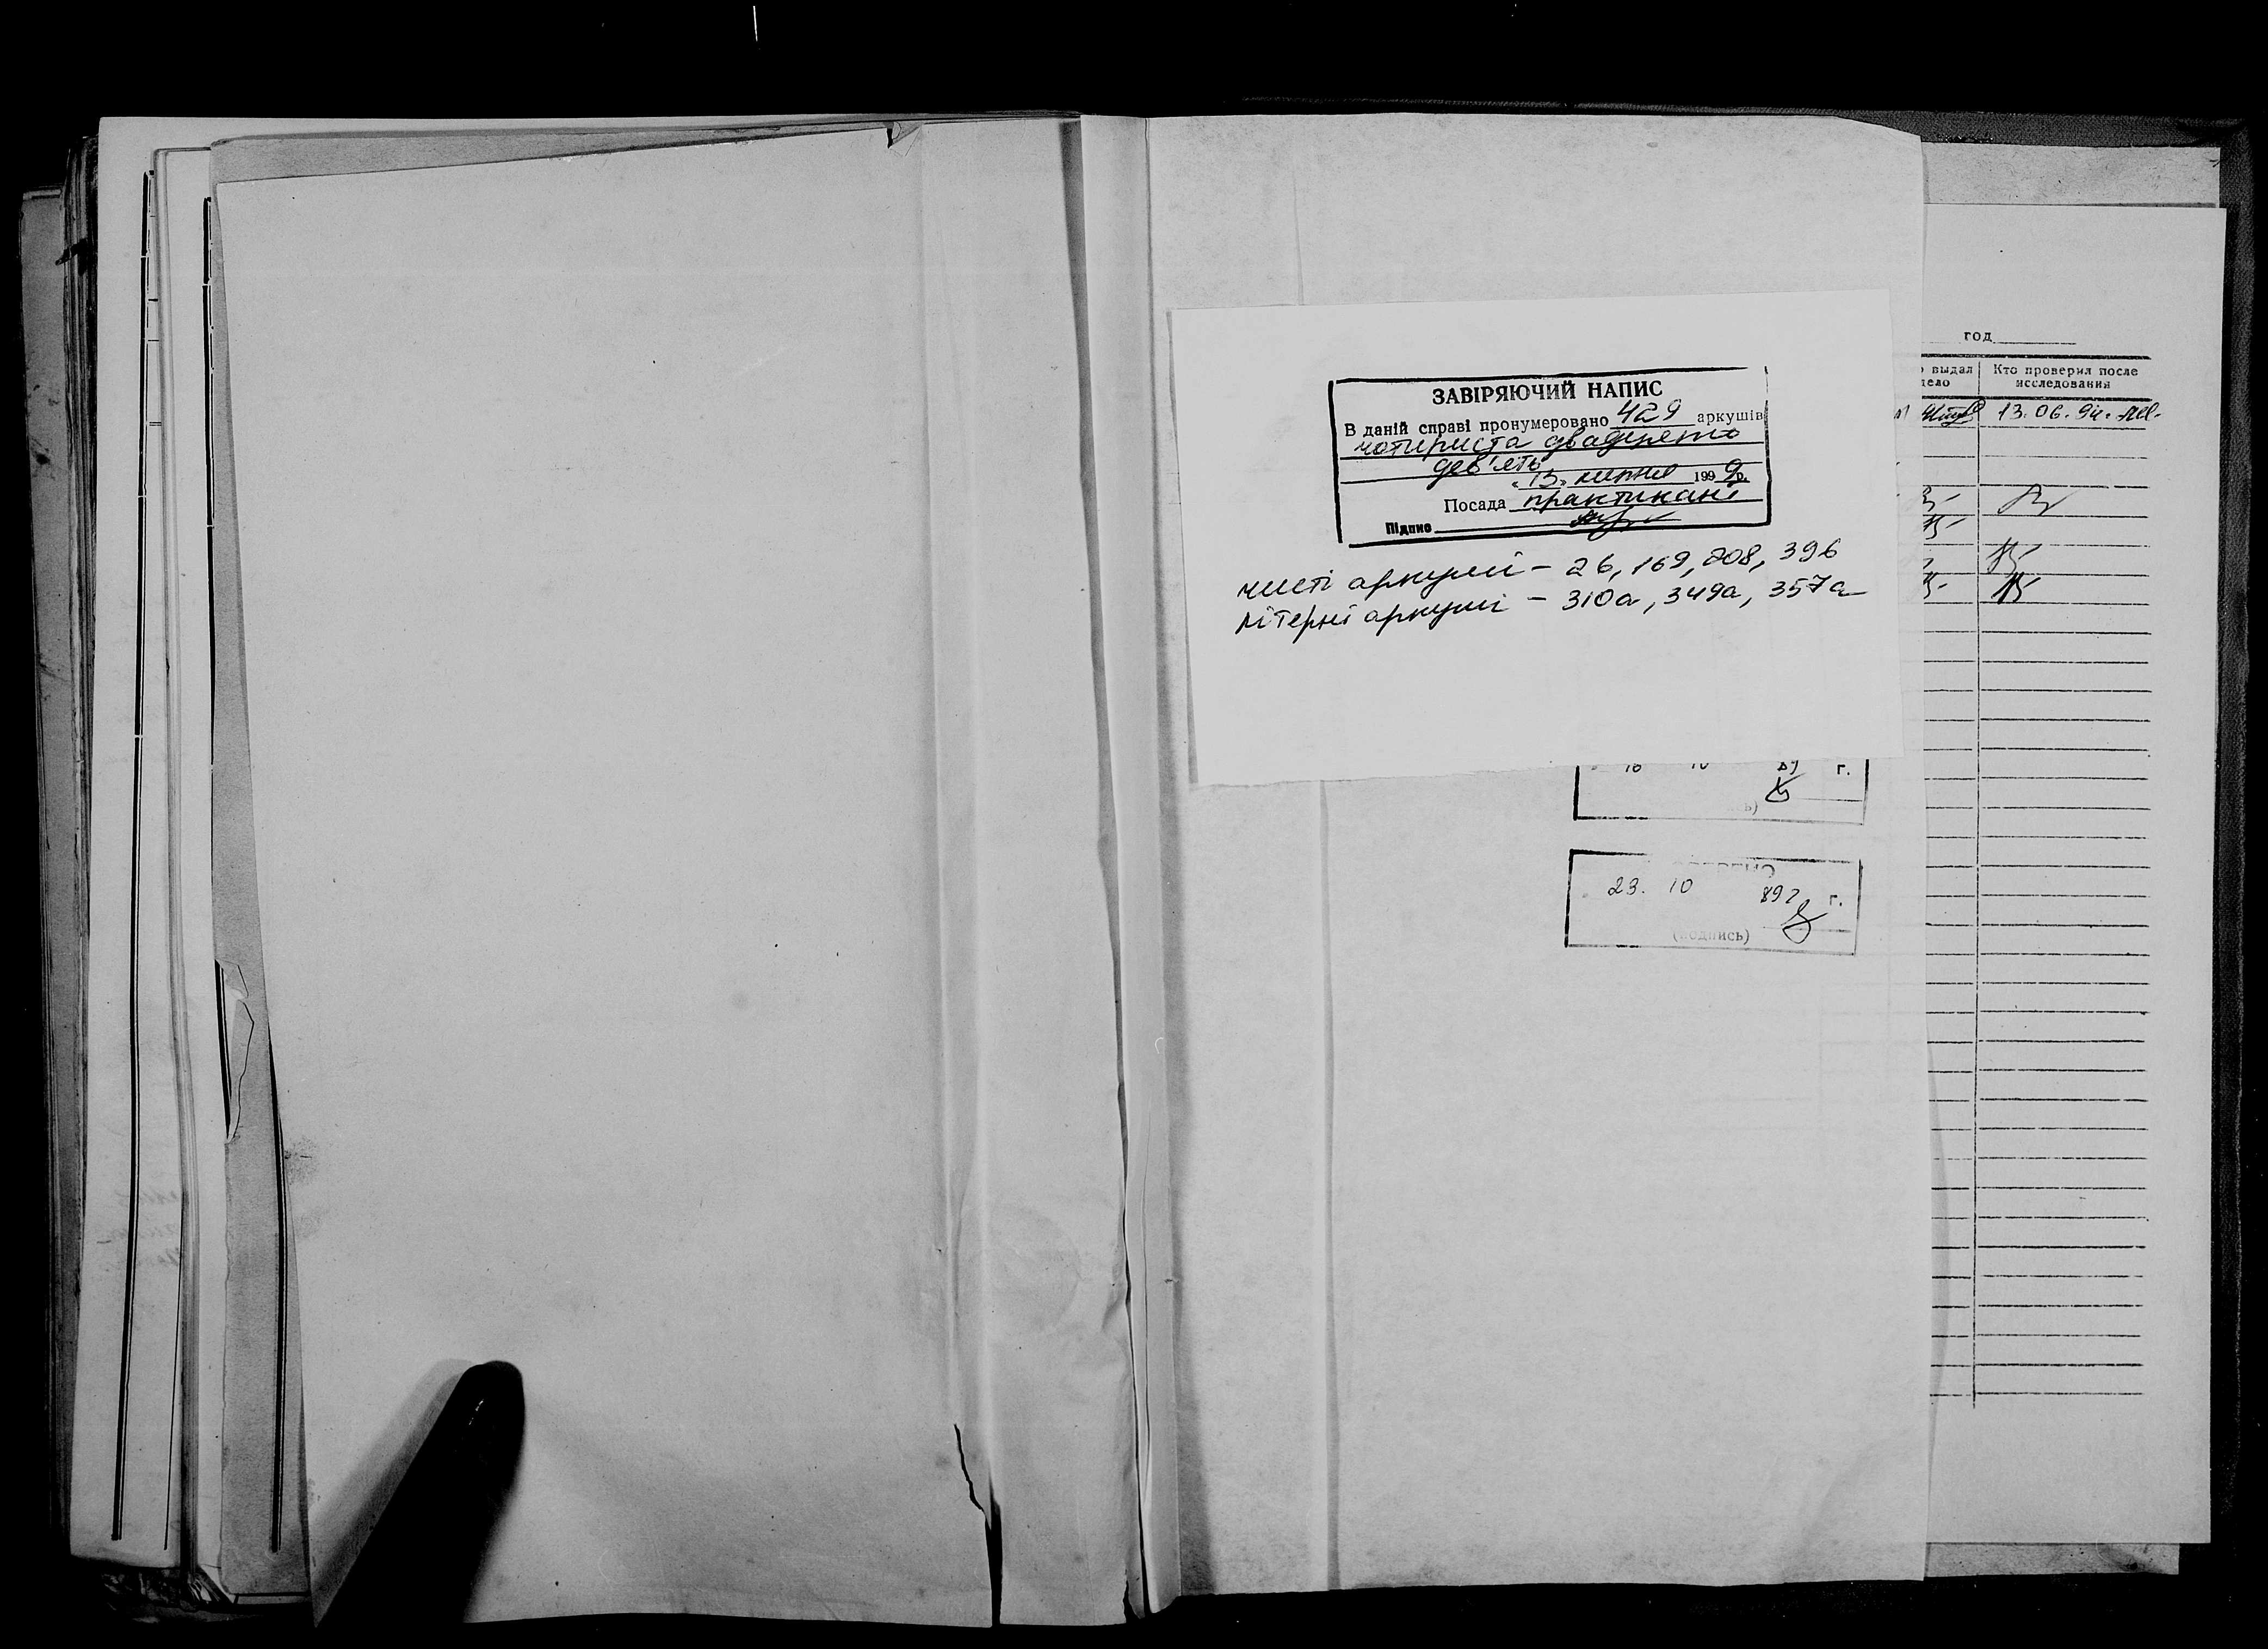 ЗАВІРЯЮЧИЙ НАПИС
В даній справі пронумеровано 429 аркушів
чотириста двадцять
дев'ять
"13" липня 1999р.
Посада практикант
Підпис
чисті аркуші – 26, 169, 208, 396
літерні аркуші – 310а, 349а, 357а
10 89 г.
23. 10 892 г.
(подпись)
год
выдал
дело
Кто проверил после
исследования
13.06.94.